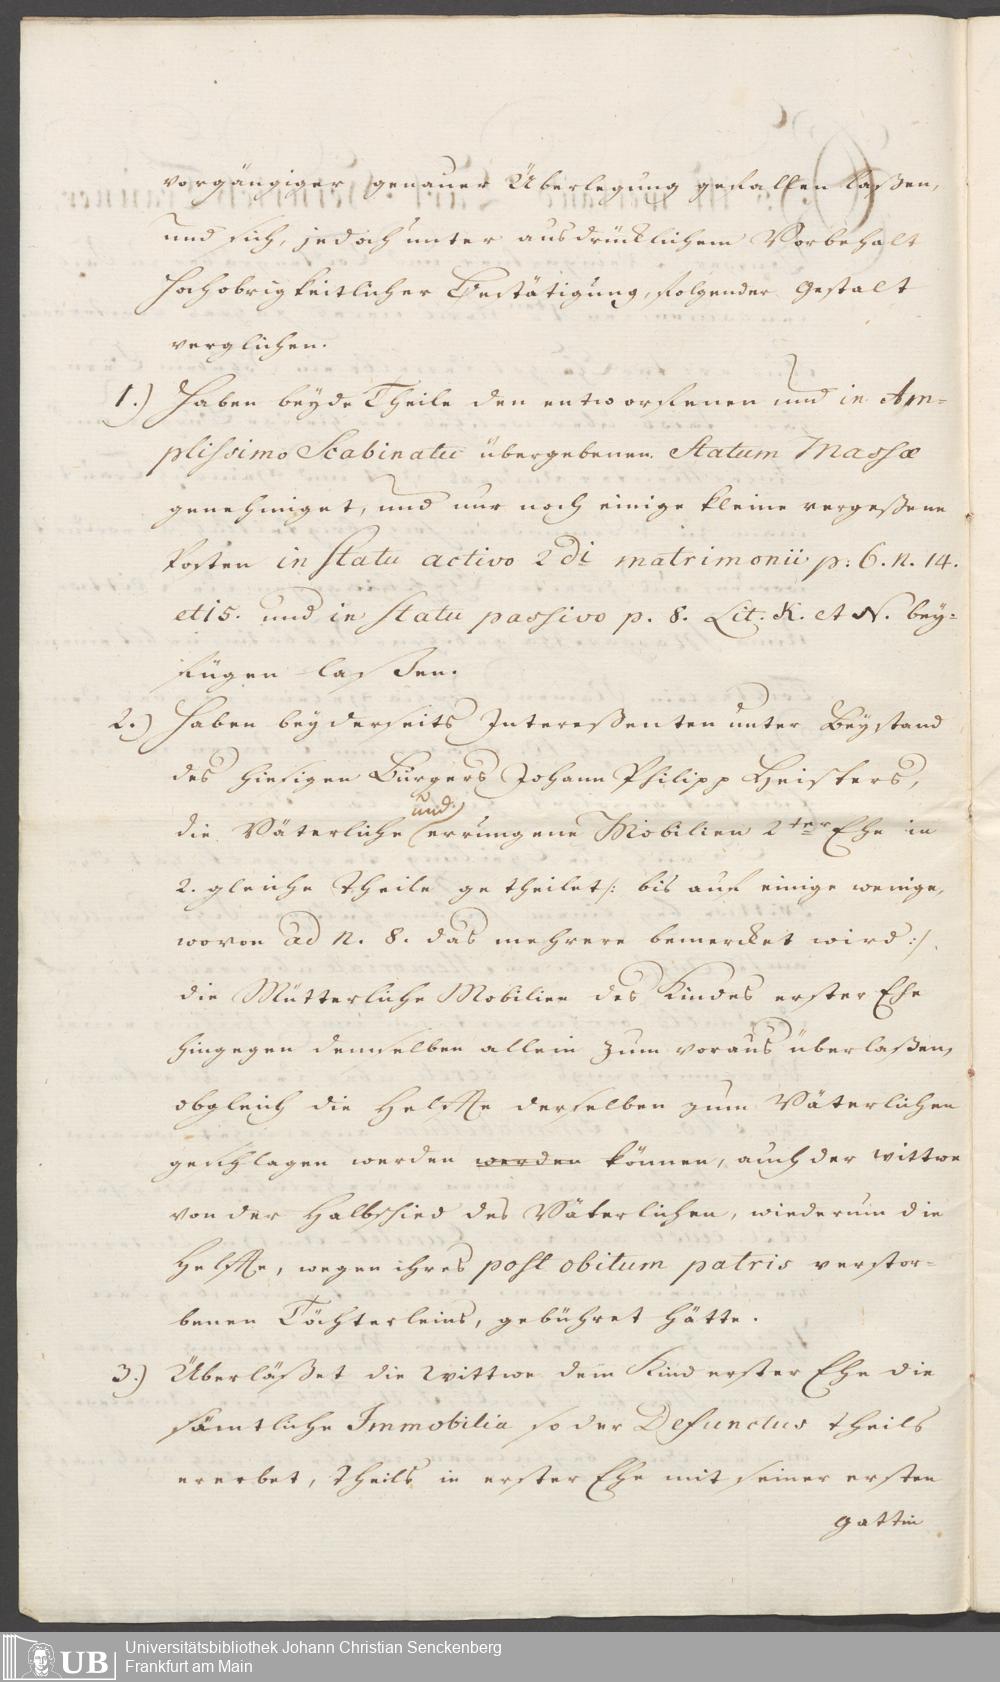 vorgängiger genauer Überlegung gefallen laßen,
und sich, jedoch unter ausdrücklichem Vorbehalt
hochobrigkeitlicher Bestätigung, folgender Gestalt
verglichen.
1.) Haben beyde Theile den entworfenen und in Am=
plissimo Scabinatu übergebenen Statum Massæ
genehmiget, und nur noch einige kleine vergeßene
Posten in Statu activo 2di matrimonii p: 6. n. 14.
et 15. und in Statu passivo p. 8. Lit. K. et N. bey=
fügen laßen.
2.) Haben beyderseits Intereßenten unter Beystand
des hiesigen Burgers Johann Philipp Heisters,
und
die Väterliche errungene Mobilien 2ter Ehe in
2. gleiche Theile getheilet /: bis auf einige wenige,
wovon ad N. 8. das mehrere bemercket wird :/
die Mütterliche Mobilien des Kindes erster Ehe
hingegen demselben allein zum voraus überlaßen,
obgleich die Helffte derselben zum Väterlichen
geschlagen werden werden können, auch der Wittwe
von der Halbschied des Väterlichen, wiederum die
Helffte, wegen ihres post obitum patris verstor=
benen Töchterleins, gebühret hätte.
3.) Überläßet die Wittwe dem Kind erster Ehe die
sämtliche Immobilia so der Defunctus theils
ererbet, theils in erster Ehe mit seiner ersten
Gattin
UB
Universitätsbibliothek Johann Christian Senckenberg
Frankfurt am Main